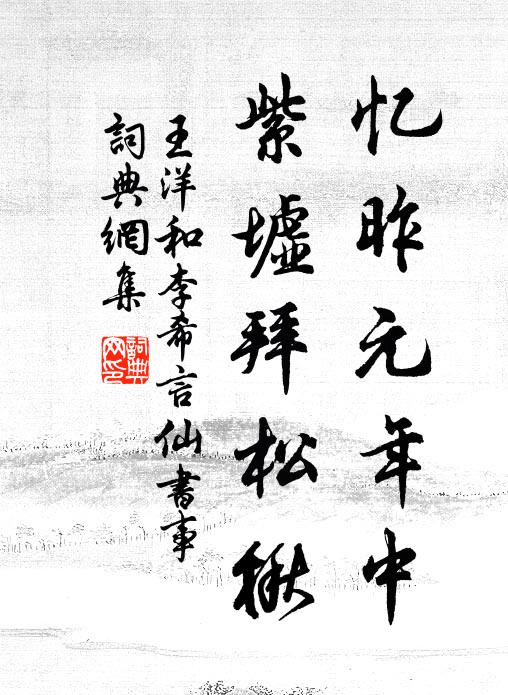 忆昨元年中
紫墟拜松楸
王洋和李希言仙書事
詞典網集
詞典网印